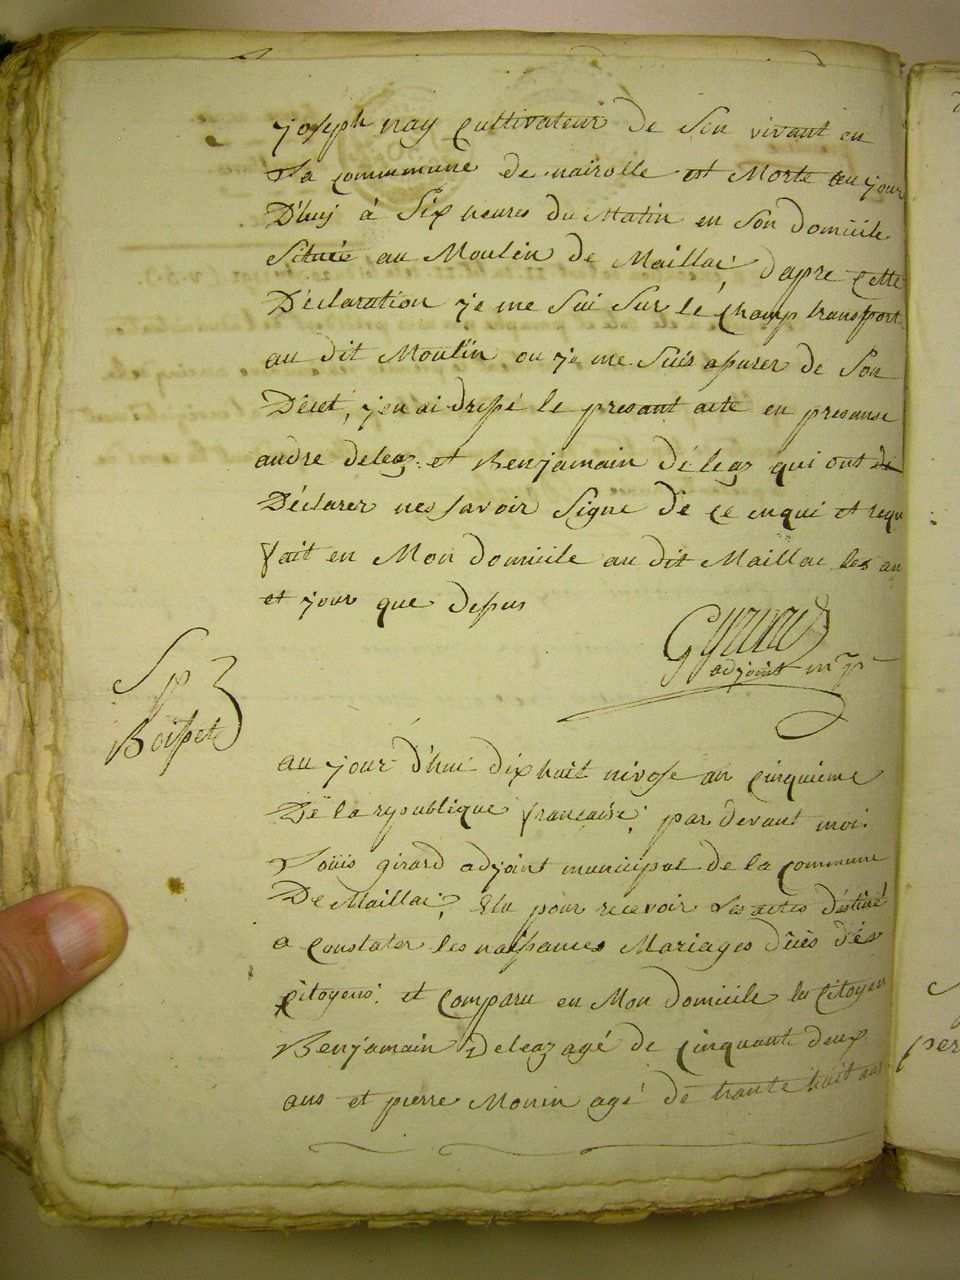 joseph nay Cultivateur De Son vivant en
Sa Commune De nairolle est Morte au jour
D'huy á Six heures Du Matin en Son Domicile
Situéé au Moulin De Maillac D'apre Cette
Déclaration je me Sui Sur le Champ transport
au dit Moulin ou je me Suis asurer De Son
Déset, jen ai Dressé le presant acte en presanse
andre deleaz et Benjamain Déleaz qui ont dé
Déclarer nes Savoir Signe De Ce enqui et requ
fait en Mon Domicile au dit Maillac les an
et jour que Desus
Girard
adjoint m pl
Sp
Boisset
au jour D'hui Dix huit nivose an Cinquieme
De la republique francaise par Devant moi
Loüis girard adjoint municipal De la Commune
De Maillac, Elu pour recevoir Les actes déstiné
a Constater les naissances Mariages Décès Dés
Citoyens et Comparu en Mon Domicile le Citoyen
Benjamain Deleaz agé De Cinquante Deux
ans et pierre Monin agé De trante huit ans
per